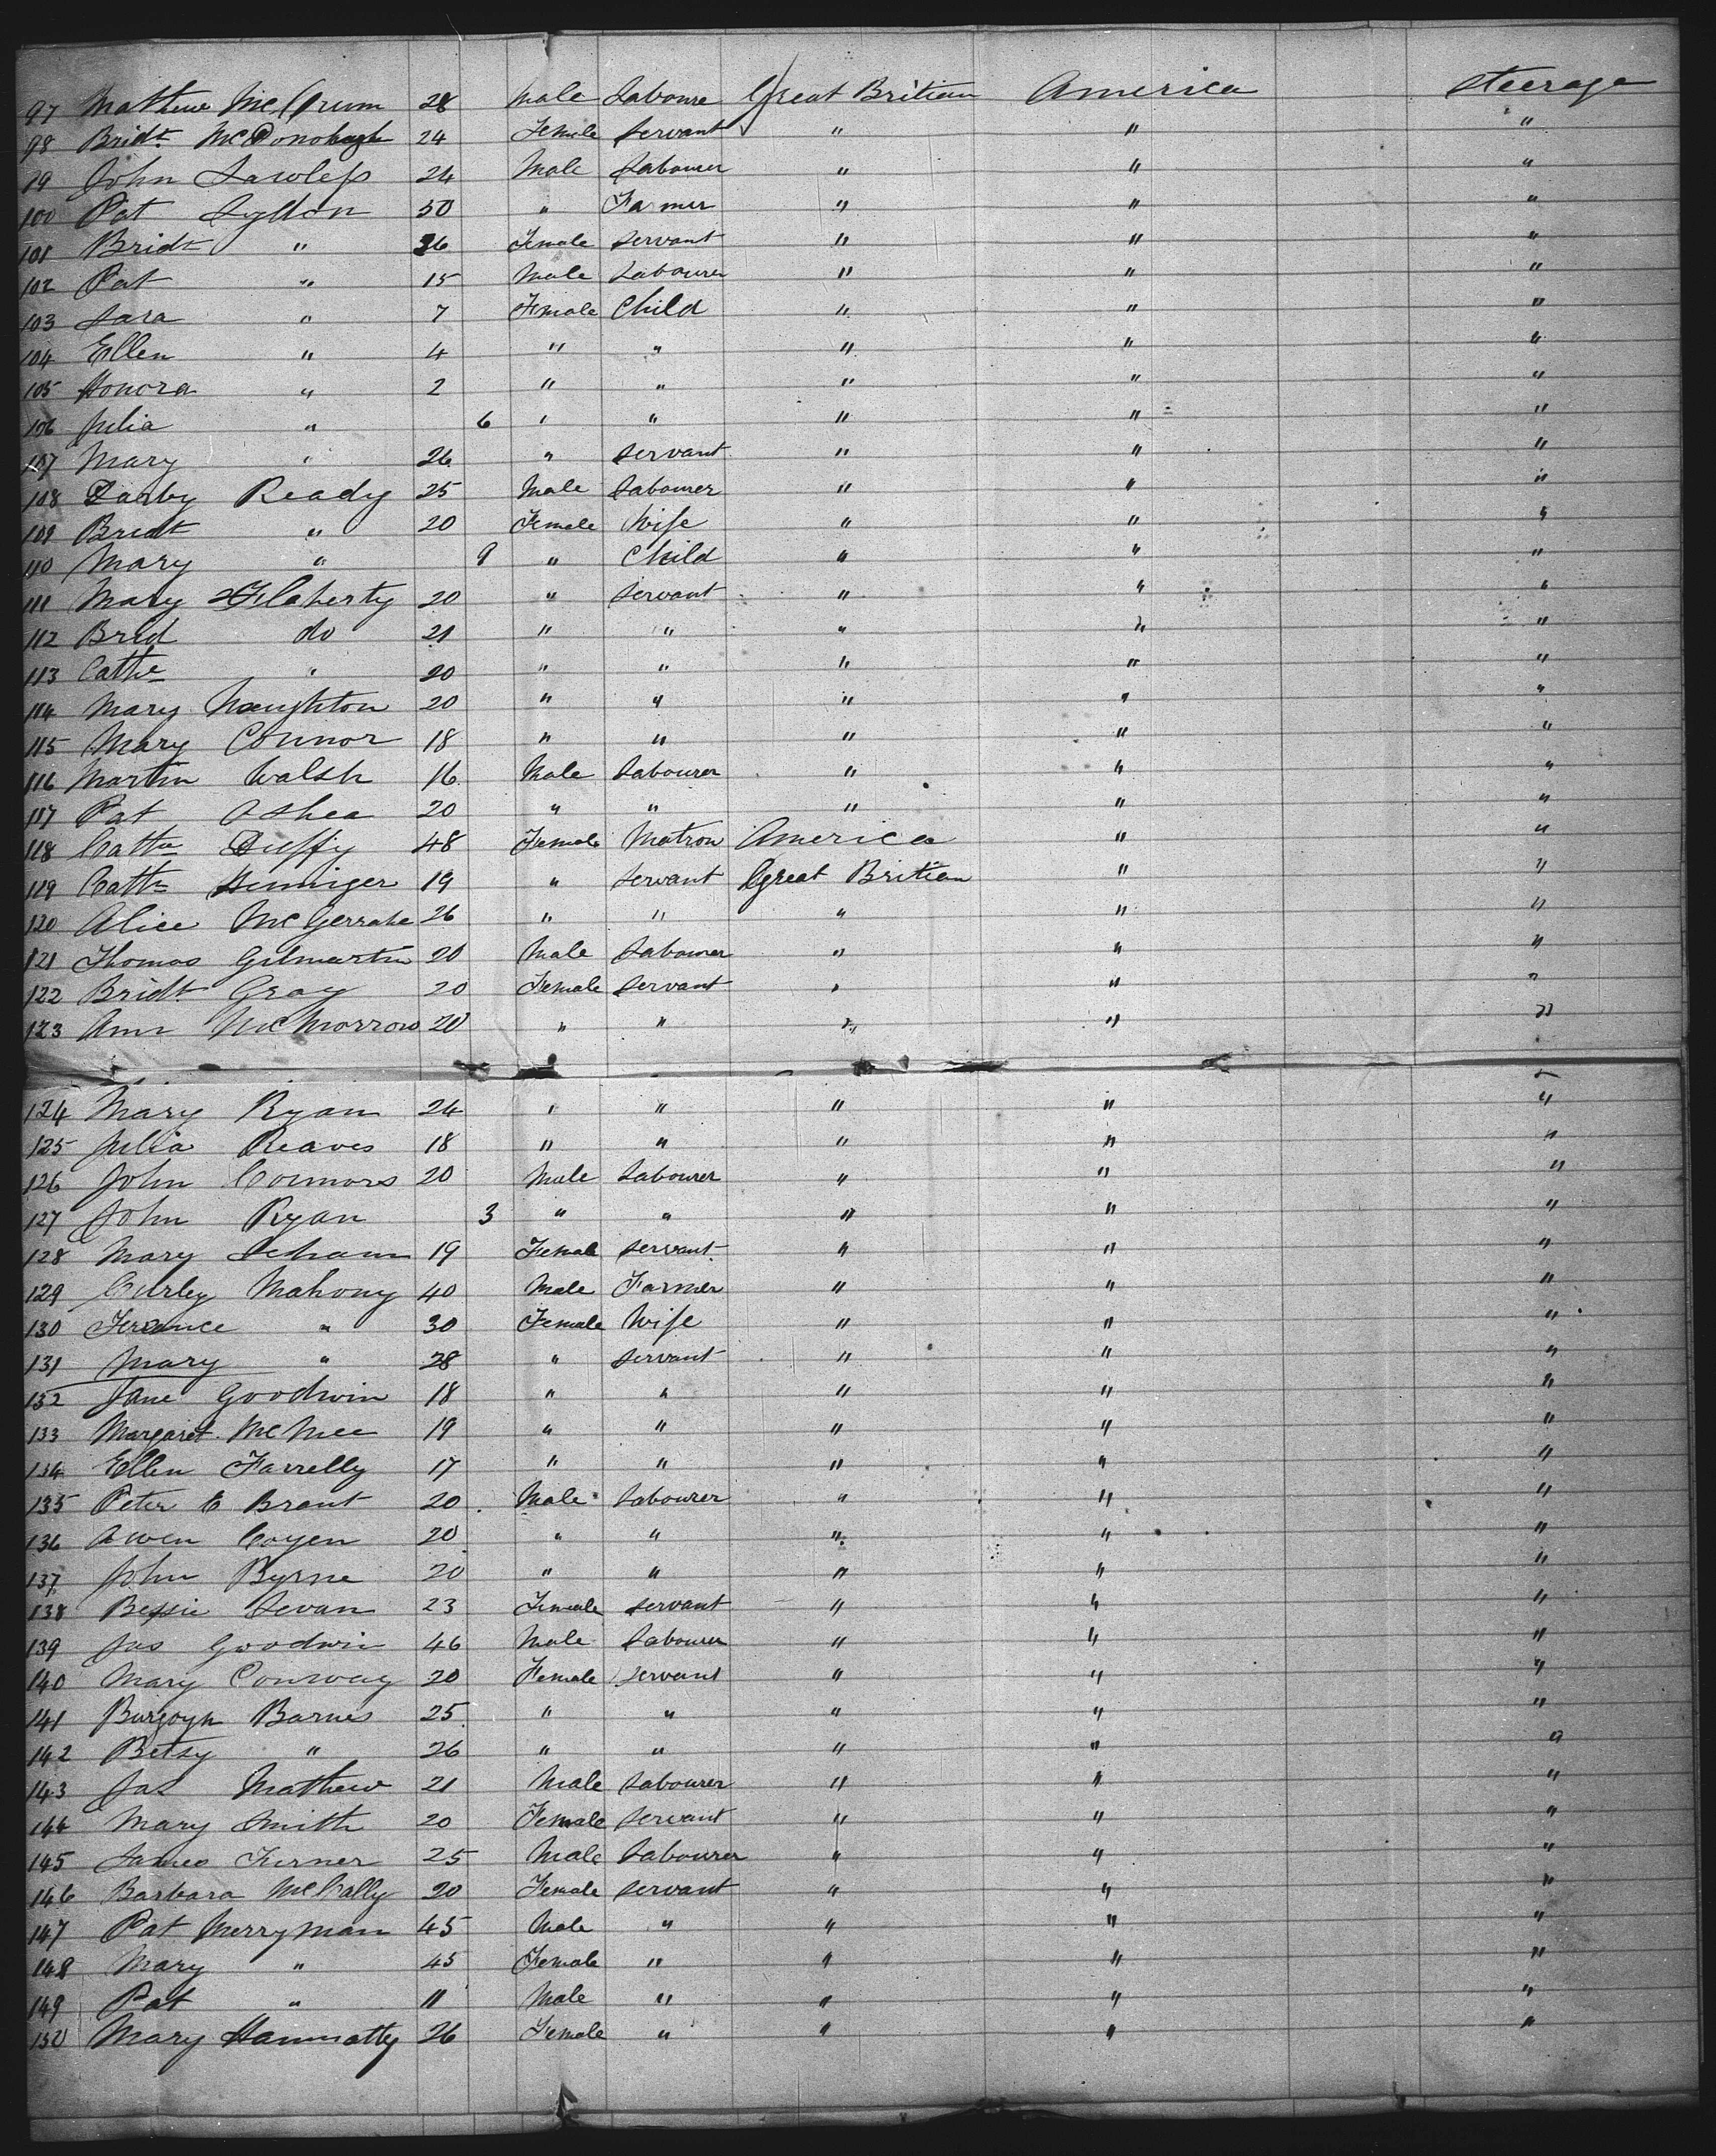 97 Mathew McCrum 28 Male Laboure Great Britian America Steerage
98 Bridt McDonohugh 24 Female Servant " " "
99 John Lawless 24 Male Labourer " " "
100 Pat Lydon 50 " Farmer " " "
101 Bridt " 36 Female Servant " " "
102 Pat " 15 Male Labourer " " "
103 Sara " 7 Female Child " " "
104 Ellen " 4 " " " " "
105 Honora " 2 " " " " "
106 Julia " 6 " " " " "
107 Mary " 26 " Servant " " "
108 Darby Ready 25 Male Labourer " " "
109 Bridt " 20 Female Wife " " "
110 Mary " 9 " Child " " "
111 Mary Flaherty 20 " Servant " " "
112 Brid do 21 " " " " "
113 Cathe " 20 " " " " "
114 Mary Naughton 20 " " " " "
115 Mary Connor 18 " " " " "
116 Martin Walsh 16 Male Labourer " " "
117 Pat OShea 20 " " " " "
118 Cathe Duffy 48 Female Matron America " "
119 Cathe Henniger 19 " Servant Great Britian " "
120 Alice 26 " " " " "
121 Thomas Gilmartin 20 Male Labourer " " "
122 Bridt Gray 20 Female Servant " " "
123 Ann McMorrow 20 " " " " "
124 Mary Ryan 24 " " " " "
125 Julia Reaves 18 " " " " "
126 John Connors 20 Male Labourer " " "
127 John Ryan 3 " " " " "
128 Mary 19 Female Servant " " "
129 Curley Mahony 40 Male Farmer " " "
130 " 30 Female Wife " " "
131 Mary " 28 " Servant " " "
132 Jane Goodwin 18 " " " " "
133 Margaret McNee 19 " " " " "
134 Ellen Farrelly 17 " " " " "
135 Peter Brant 20 Male Labourer " " "
136 Owen Coyen 20 " " " " "
137 John Byrne 20 " " " " "
138 Bessie Levan 23 Female Servant " " "
139 Jas Goodwin 46 Male Labourer " " "
140 Mary Conway 20 Female Servant " " "
141 Burgoyn Barnes 25 " " " " "
142 Betsy " 26 " " " " "
143 Jas Mathew 21 Male Labourer " " "
144 Mary Smith 20 Female Servant " " "
145 James Turner 25 Male Labourer " " "
146 Barbara McCally 20 Female Servant " " "
147 Pat Merryman 45 Male " " " "
148 Mary " 45 Female " " " "
149 Pat " 11 Male " " " "
150 Mary Hanmatty 26 Female " " " "